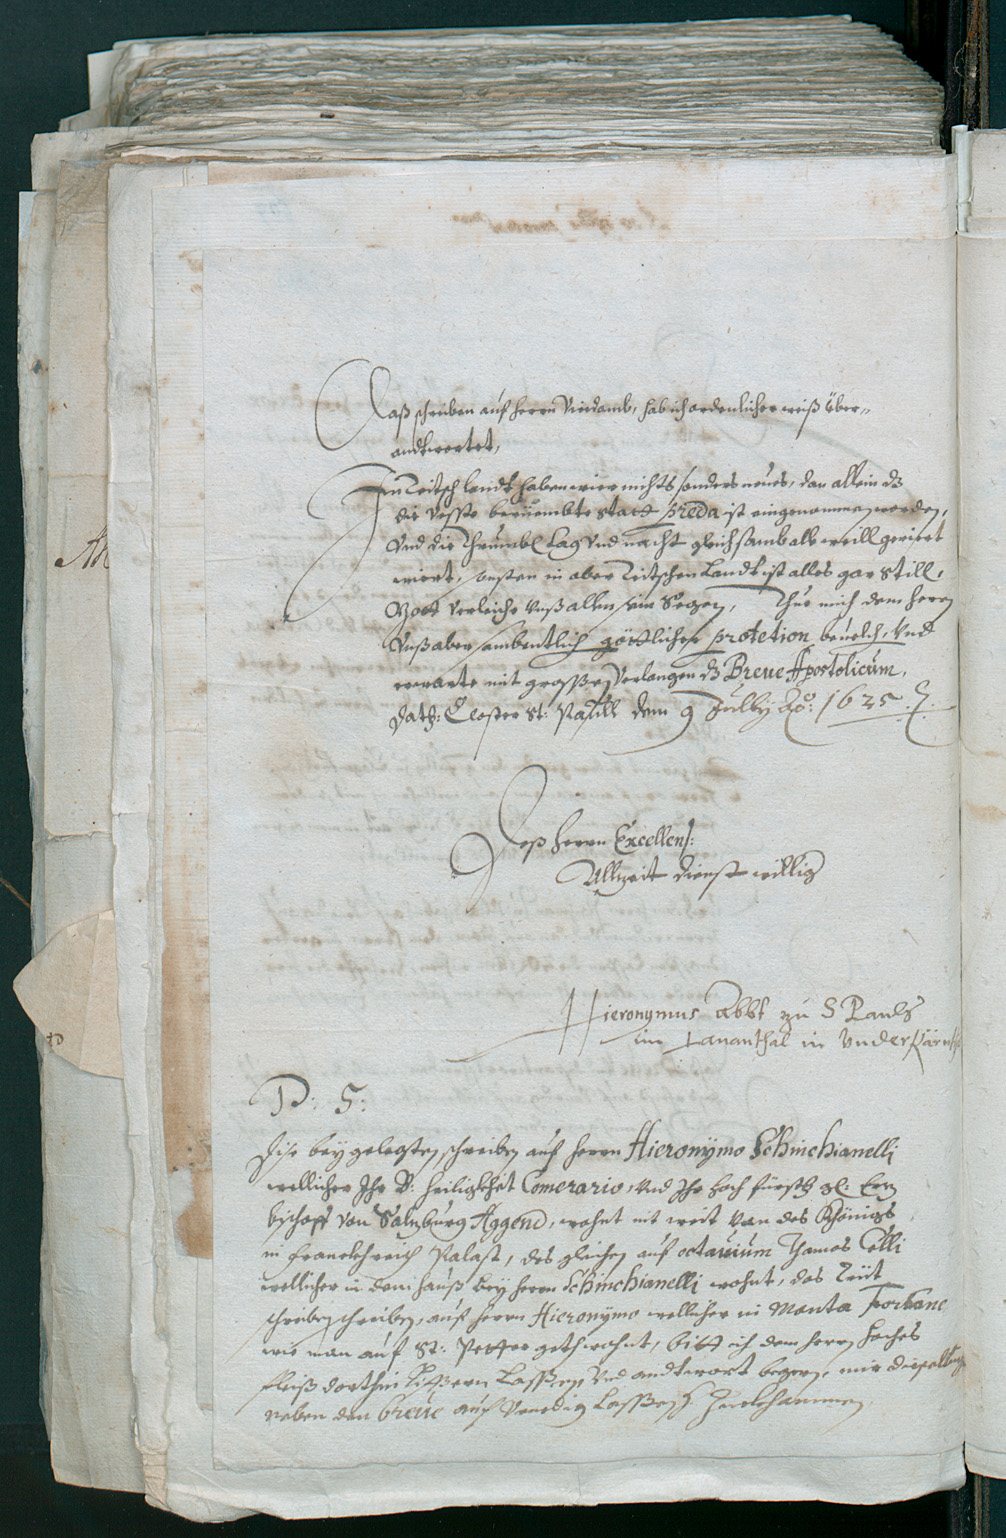 Daß schreiben auf herrn Viedamb, hab ich ordenlicher weiß über„
andtwortet,
In Teitschlandt haben wier nichts sonders neües, dan allein dz
die Vesste berüembte statt preda ist eingenommen worden,
Vnd die Thrumbl tag vnd nacht gleichsamb alleweill geriert
wiert, vnsten in aber Teitschen Landt ist alles gar still,
Gott verleiche vnß allen sein Segen, Thue mich dem herrn
Vnß aber sambentlich göttlicher protetion beuelch, vnd
erwarte mit grossen verlangen dz Breue Apostolicum,
Datz: Closter St: Paulß dem 9 Julby Aõ: 1625.
Deß herrn Excellenz:
Allzeit dienstwillig
Hieronymus Abbt zu S Pauls
im Lauanthal in Vnderkärn
P: S:
Dise beygelegten schreiben auf herrn Hieronÿmo Schinchianelli
wellicher Ihr B: heiligkheit Comerario, vnd Ihr hoch fürstl: gl: Erz
bischoff von Salzburg Aggend, wohnt nit weit von des Khönigs
in franckhreich Palast, des gleichen auf octauium Thomas Celli
wellicher in dem hauß bey herrn Schinchianelli wohnt, das Trit
schreiben, auf herrn Hieronÿmo wellicher in Monta
wie man auf St: Petter geth wohnt, bitt ich dem herrn hoches
fleiß dorthin lifern lassen, vnd andtwort begern, mir dieselbig
neben den breue auf Venedig lassen Zuekhommen